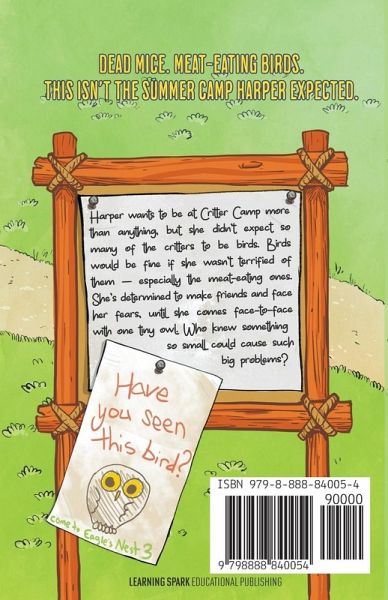 DEAD MICE. MEAT-EATING BIRDS.
THIS ISN'T THE SUMMER CAMP HARPER EXPECTED.
Harper wants to be at Critter Camp more
than anything, but she didn't expect so
many of the critters to be birds. Birds
would be fine if she wasn't terrified of
them — especially the meat-eating ones.
She's determined to make friends and face
her fears, until she comes face-to-face
with one tiny owl. Who knew something
so small could cause such
big problems?
Have
you seen
this bird?
come to Eagle's Nest 3
ISBN 979-8-888-84005-4
90000
9 798888 840054
LEARNING SPARK EDUCATIONAL PUBLISHING